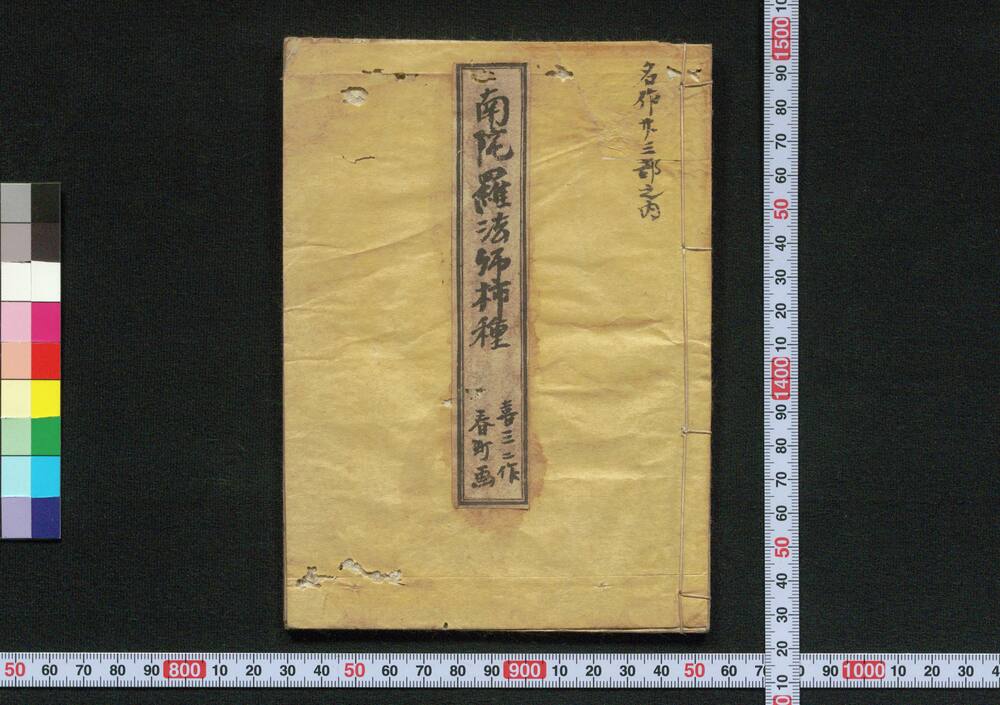 名作廿三部之内
南陀羅法師柿種
喜三二作
春町画
50 60 70 80 90 800 10 20 30 40 50 60 70 80 90 900 10 20 30 40 50 60 7 80 90 1000 10 20 30
10 1500 90 80 70 60 50 40 30 20 10 1400 90 80 70 60 50 40 30 20 10